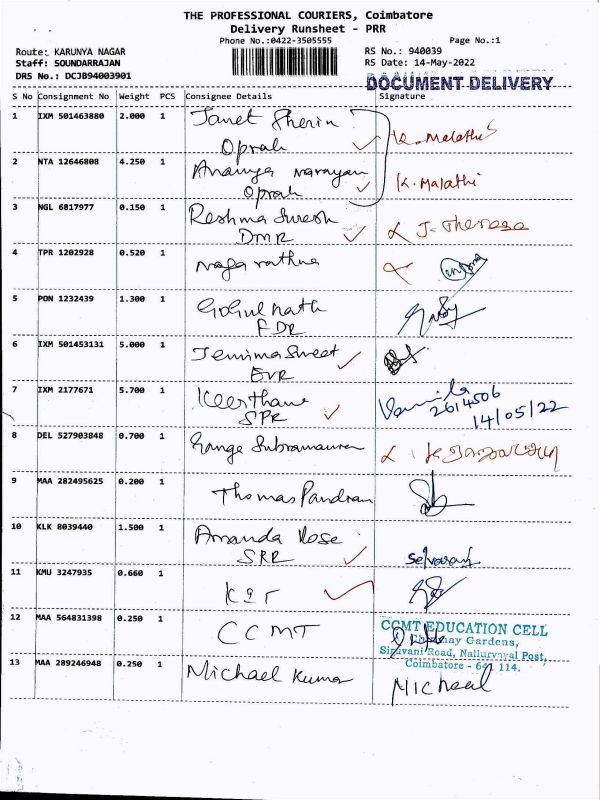 THE PROFESSIONAL COURIERS, Coimbatore
Delivery Runsheet - PRR
Phone No.:0422-3505555
Page No.:1
Route: KARUNYA NAGAR
RS No.: 940039
Staff: SOUNDARRAJAN
RS Date: 14-May-2022
DRS No.: DCJB94003901
DOCUMENT DELIVERY
S No Consignment No Weight PCS Consignee Details Signature
1 IXM 501463880 2.000 1 Janet Sherin K. Malathi
Oprah
2 NTA 12646808 4.250 1 Ananya Narayan K. Malathi
Oprah
3 NGL 6817977 0.150 1 Reshma Suresh J. Theresa
DMR
4 TPR 1202928 0.520 1 Naga rathna
5 PON 1232439 1.300 1 Gohul nath
FDR
6 IXM 501453131 5.000 1 Jemima Sweet
EVR
7 IXM 2177671 5.700 1 Keerthana Vennila
SPR 2614506
14/05/22
8 DEL 527903848 0.700 1 Ganga Subramanian
9 MAA 282495625 0.200 1 Thomas Pandian
10 KLK 8039440 1.500 1 Amanda Rose
SRR Selvaraj
11 KMU 3247935 0.660 1
12 MAA 564831398 0.250 1 CCMT CCMT EDUCATION CELL
Gardens,
Siruvani Road, Nallurvayal Post,
Coimbatore - 641 114.
13 MAA 289246948 0.250 1 Michael Kumar Micheal